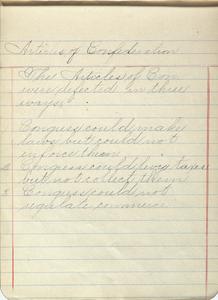 Articles of Confederation
The Articles of Con
were defected in three
ways:
1 Congress could make
laws but could not
enforce them
2 Congress could levy taxes
but not collect them
3 Congress could not
regulate commerce